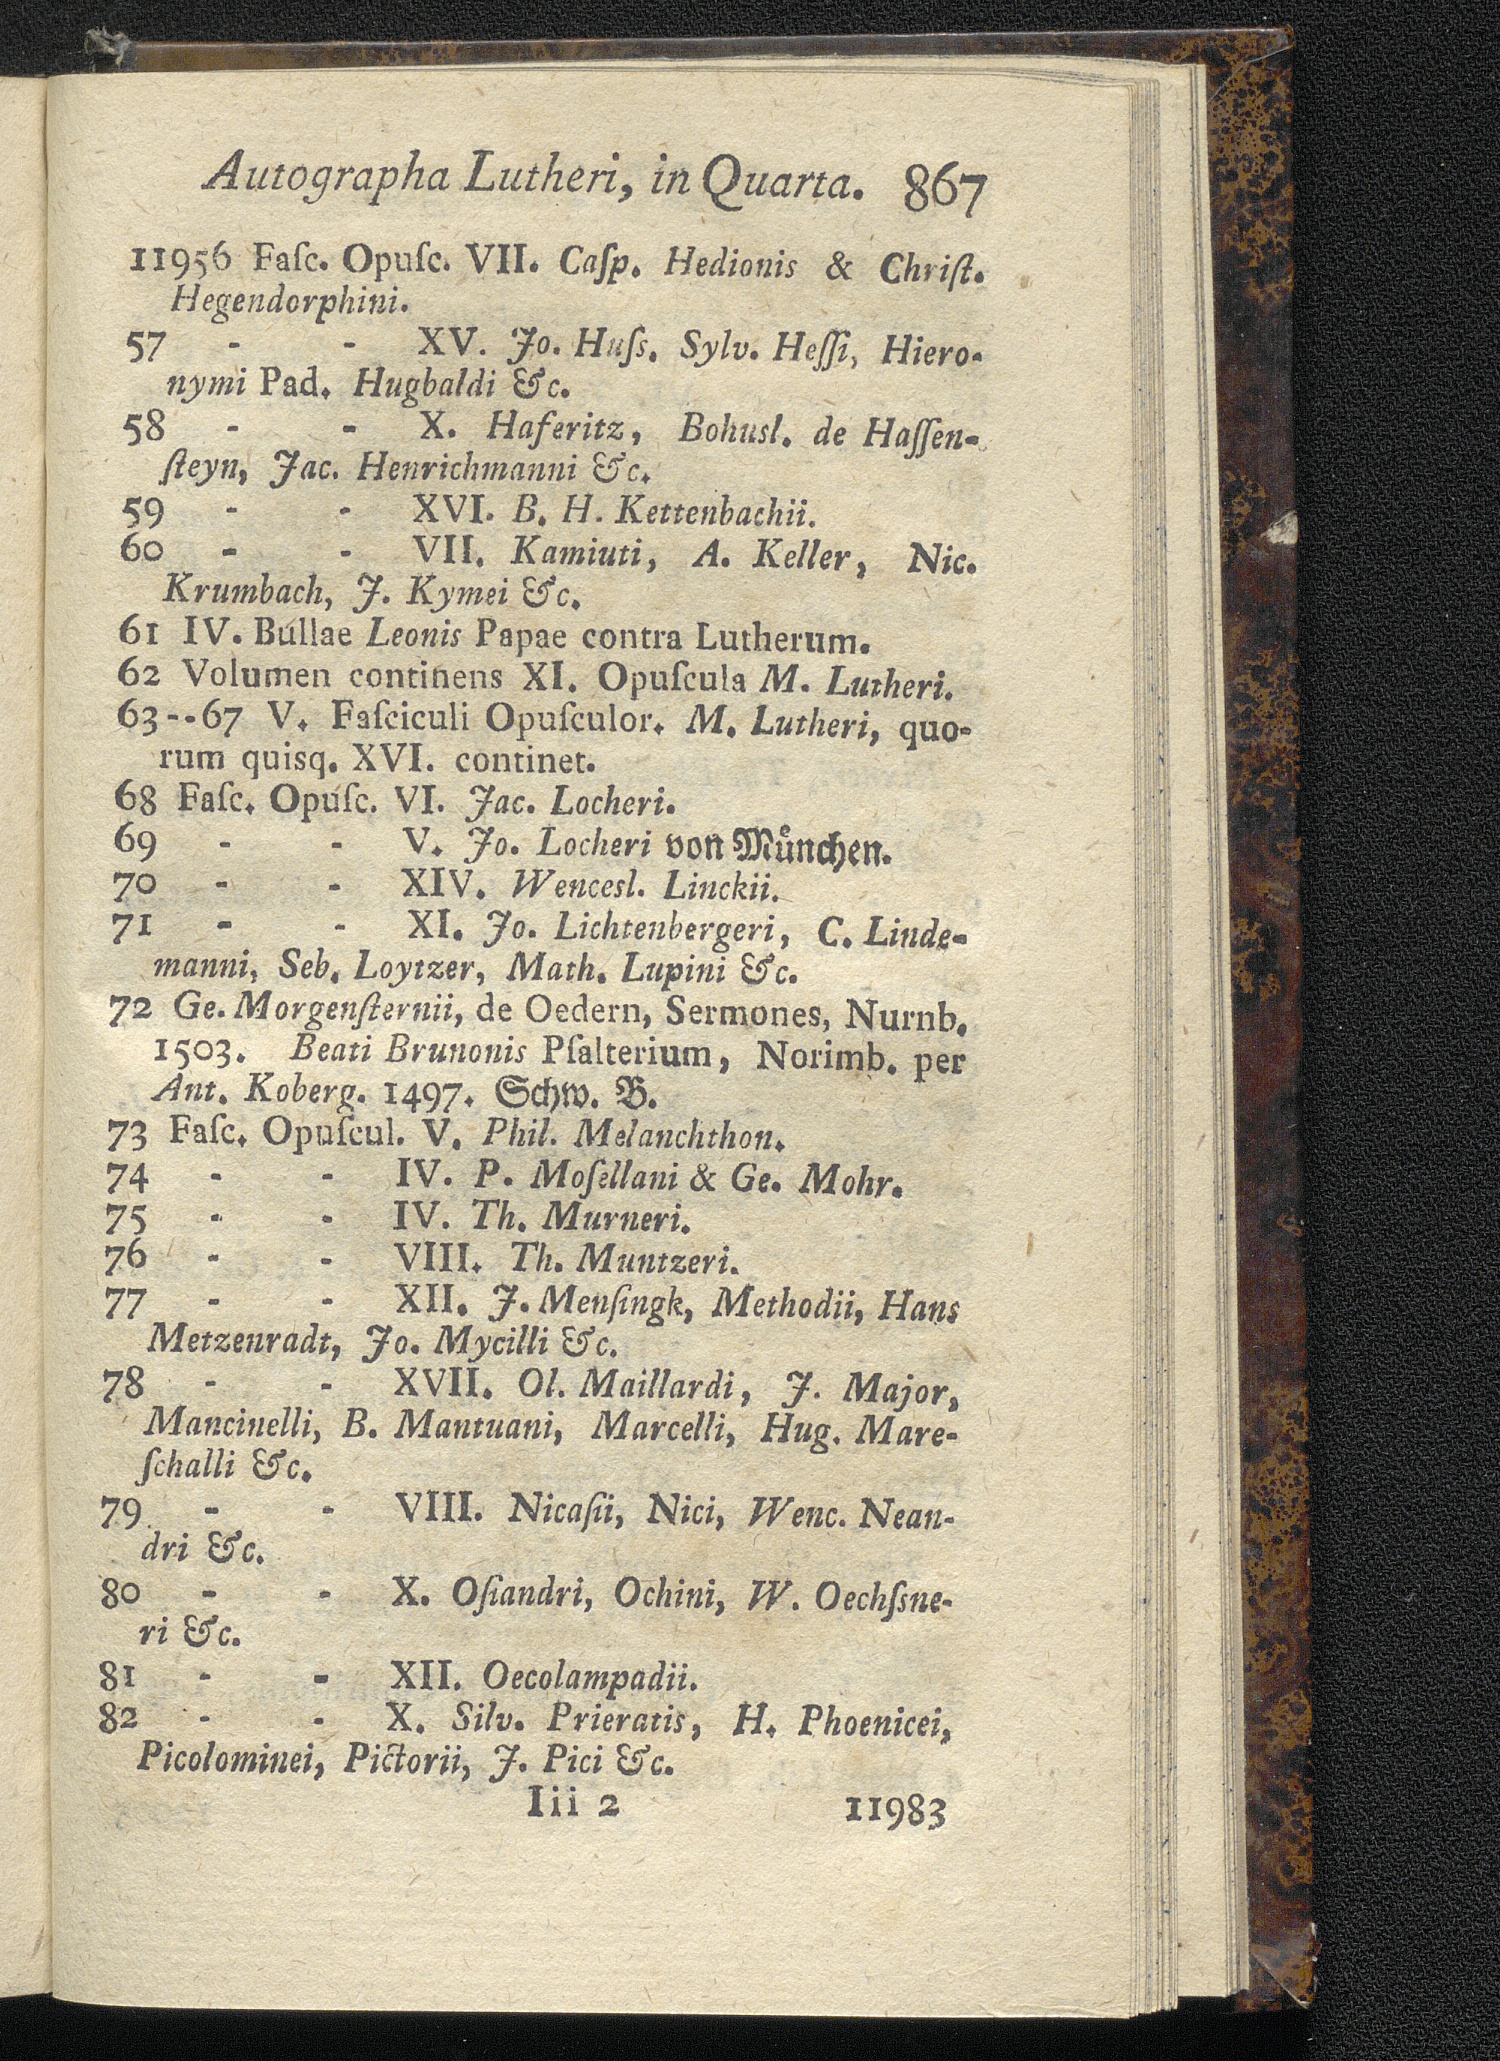 Autographa Lutheri, in Quarta. 867
11956 Faſc. Opuſc. VII. Caſp. Hedionis & Chriſt.
Hegendorphini.
57 - - XV. Jo. Huſs. Sylv. Heſſi, Hiero-
nymi Pad. Hugbaldi &c.
58 - - X. Haferitz, Bohusl. de Haſſen-
ſteyn, Jac. Henrichmanni &c.
59 - - XVI. B. H. Kettenbachii.
60 - - VII. Kamiuti, A. Keller, Nic.
Krumbach, J. Kymei &c.
61 IV. Bullae Leonis Papae contra Lutherum.
62 Volumen continens XI. Opuſcula M. Lutheri.
63--67 V. Faſciculi Opuſculor. M. Lutheri, quo-
rum quisq. XVI. continet.
68 Faſc. Opuſc. VI. Jac. Locheri.
69 - - V. Jo. Locheri von Muͤnchen.
70 - - XIV. Wencesl. Linckii.
71 - - XI. Jo. Lichtenbergeri, C. Linde-
manni, Seb. Loytzer, Math. Lupini &c.
72 Ge. Morgenſternii, de Oedern, Sermones, Nurnb.
1503. Beati Brunonis Pſalterium, Norimb. per
Ant. Koberg. 1497. Schw. B.
73 Faſc. Opuſcul. V. Phil. Melanchthon.
74 - - IV. P. Moſellani & Ge. Mohr.
75 - - IV. Th. Murneri.
76 - - VIII. Th. Muntzeri.
77 - - XII. J. Menſingk, Methodii, Hans
Metzenradt, Jo. Mycilli &c.
78 - - XVII. Ol. Maillardi, J. Major,
Mancinelli, B. Mantuani, Marcelli, Hug. Mare-
ſchalli &c.
79 - - VIII. Nicaſii, Nici, Wenc. Nean-
dri &c.
80 - - X. Oſiandri, Ochini, W. Oechſsne-
ri &c.
81 - - XII. Oecolampadii.
82 - - X. Silv. Prieratis, H. Phoenicei,
Picolominei, Pictorii, J. Pici &c.
Iii 2 11983